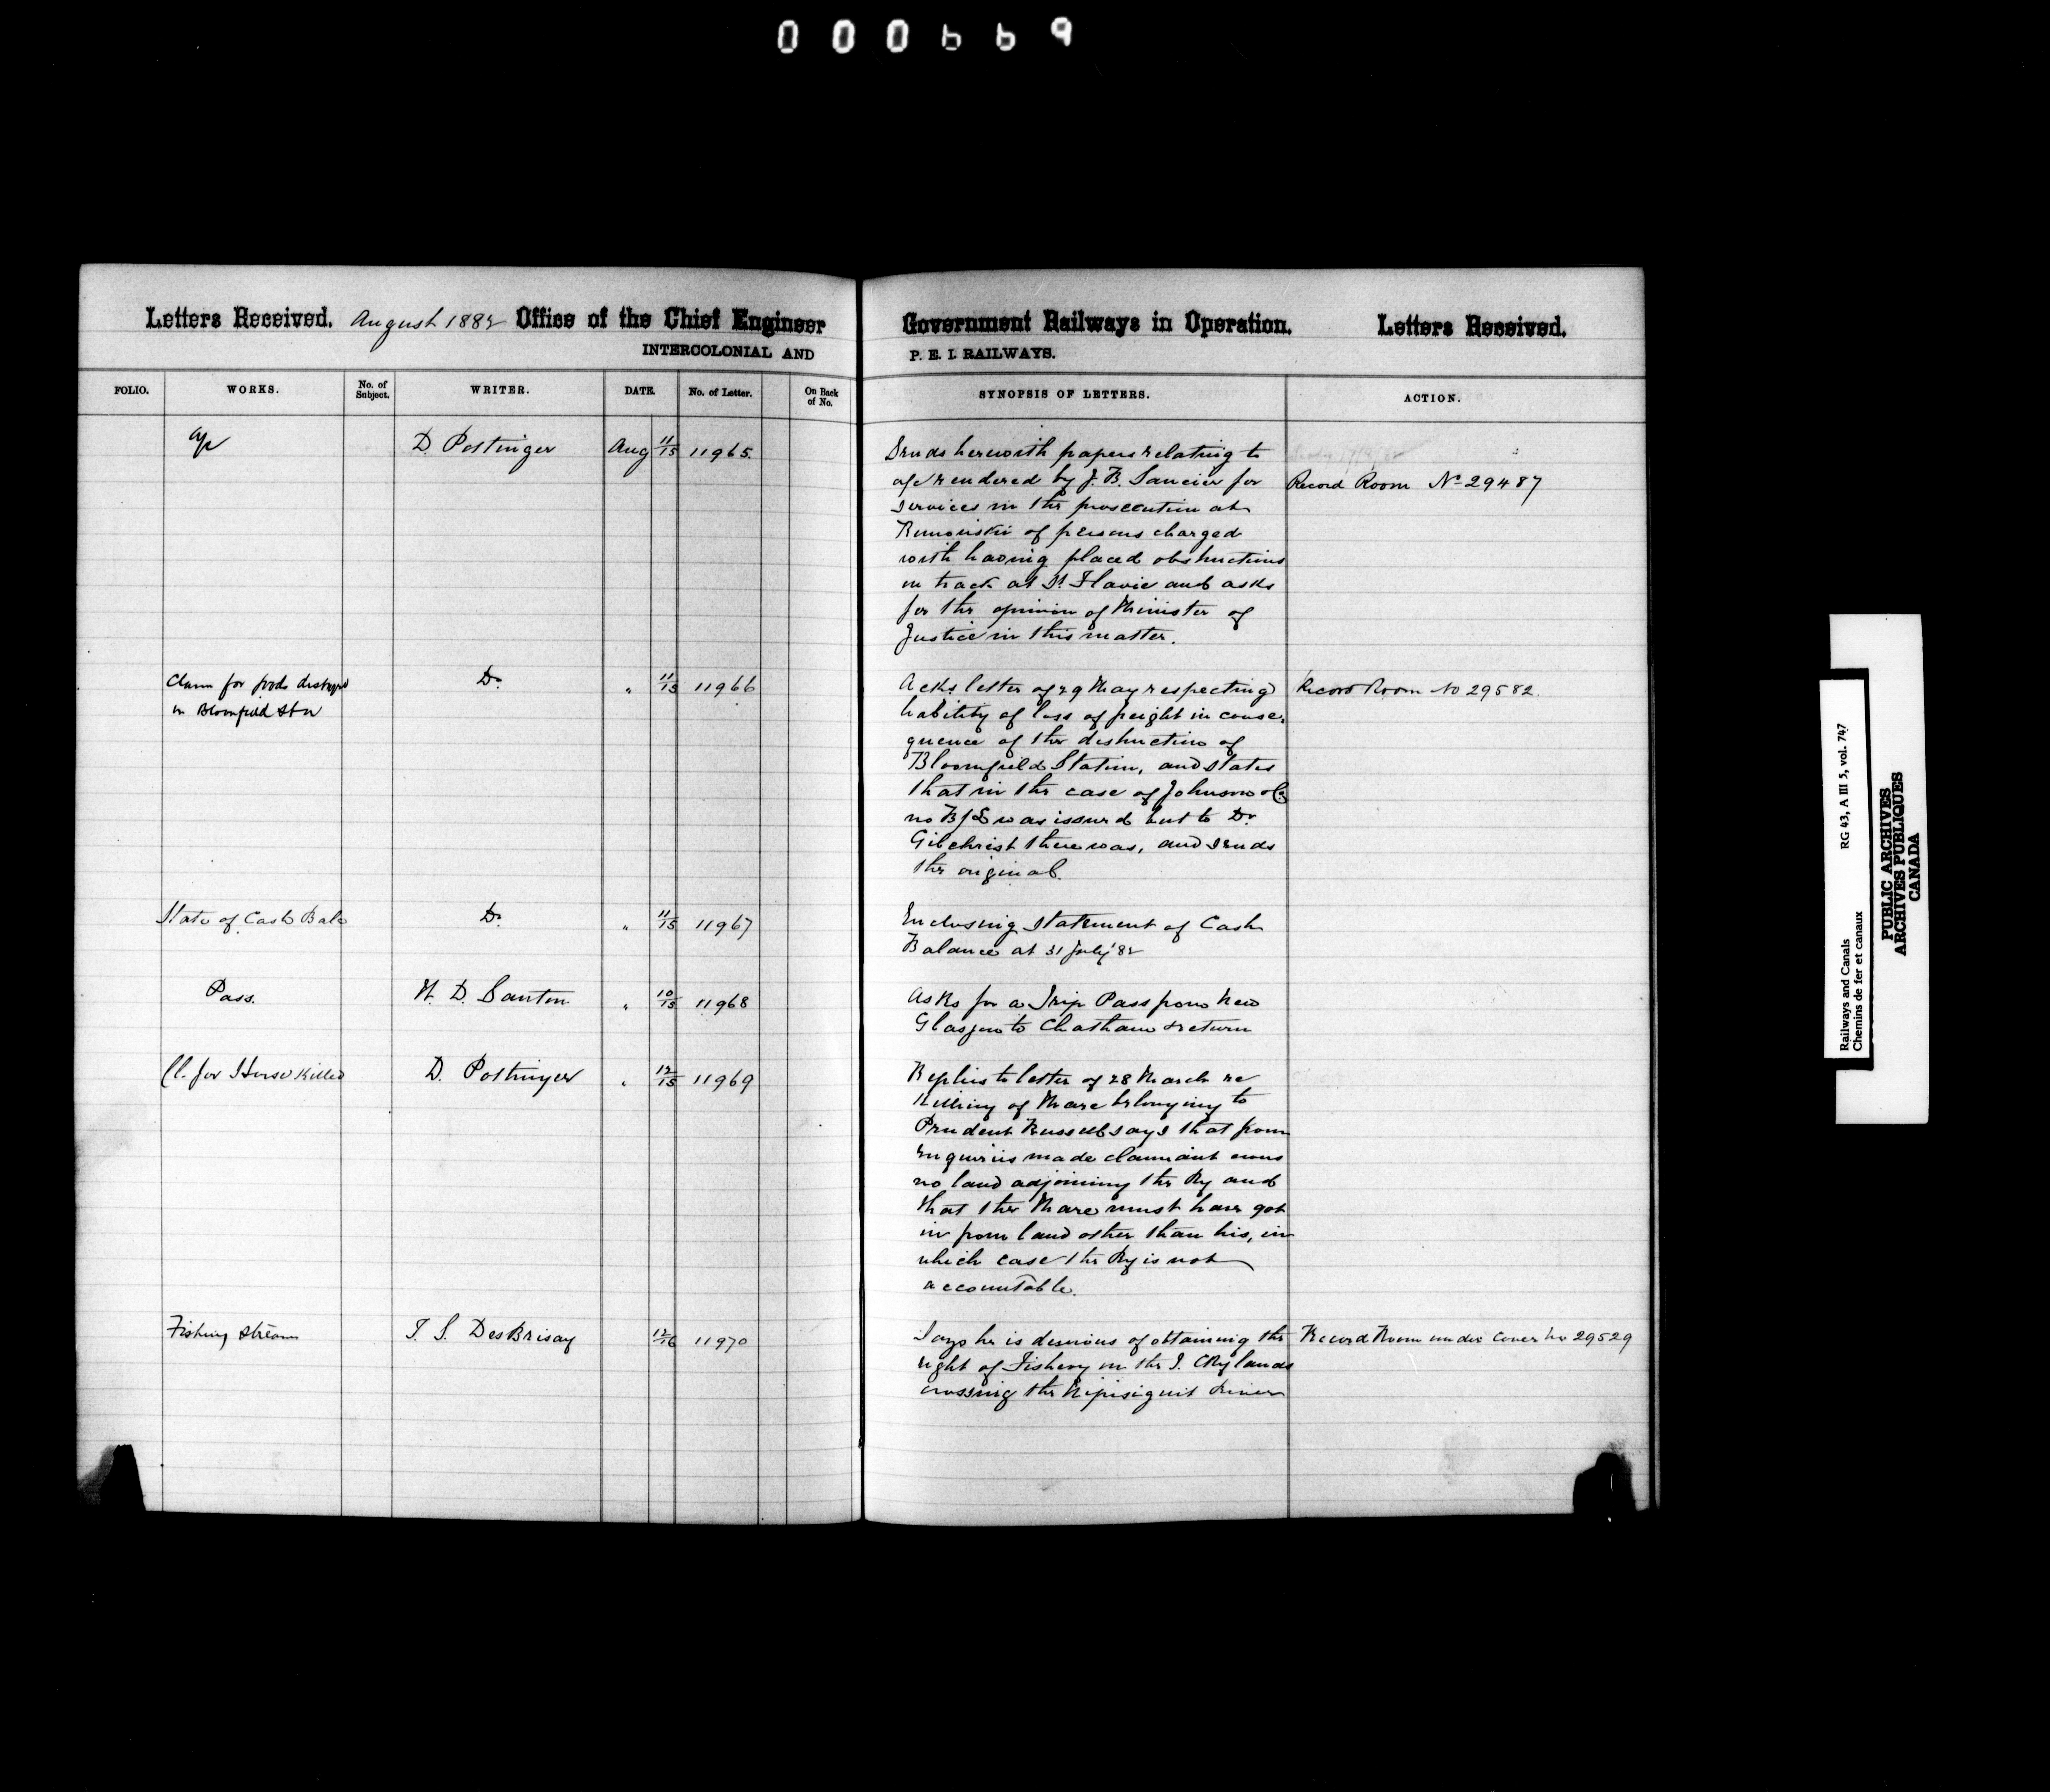 000669
Letters Received. August 1882 Office of the Chief Engineer
INTERCOLONIAL AND
Government Railways in Operation. Letters Received.
P. E. I. RAILWAYS.
FOLIO. WORKS. No. of Subject. WRITER. DATE. No. of Letter. On Back of No.
SYNOPSIS OF LETTERS. ACTION.
a/c D. Pottinger Aug 11/15 11965.
Sends herewith papers relating to
a/c rendered by J. B. for
services in the prosecution at
Rimouski of persons charged
with having placed obstructions
on track at St. Flavie and asks
for the opinion of Minister of
Justice in this matter.
Record Room No 29487
Claim for goods destroyed
in Bloomfield Stn
Do. " 11/15 11966
Acks letter of 29 May respecting
liability of loss of freight in conse-
quence of the destruction of
Bloomfield Station, and states
that in the case of Johnson & Co
no B/L was issued but to Dr
Gilchrist there was, and sends
the original.
Record Room No 29582.
State of Cash Balce Do. " 11/15 11967
Enclosing statement of Cash
Balance at 31 July '82
Pass. D. " 10/15 11968
Asks for a Trip Pass from New
Glasgow to Chatham & return
Cl. for Horse Killed D. Pottinger " 12/15 11969
Replies to letter of 28 March re
killing of Mare belonging to
Prudent Russell says that from
enquiries made claimant owns
no land adjoining the Ry and
that the Mare must have got
in from land other than his, in
which case the Ry is not
accountable.
Fishing stream T. S. DesBrisay 12/16 11970
Says he is desirous of obtaining the
right of Fishery on the I. C Ry lands
crossing the Nipisiguit River
Record Room under cover No 29529
Railways and Canals RG 43, A III 5, vol. 747
Chemins de fer et canaux
PUBLIC ARCHIVES
ARCHIVES PUBLIQUES
CANADA